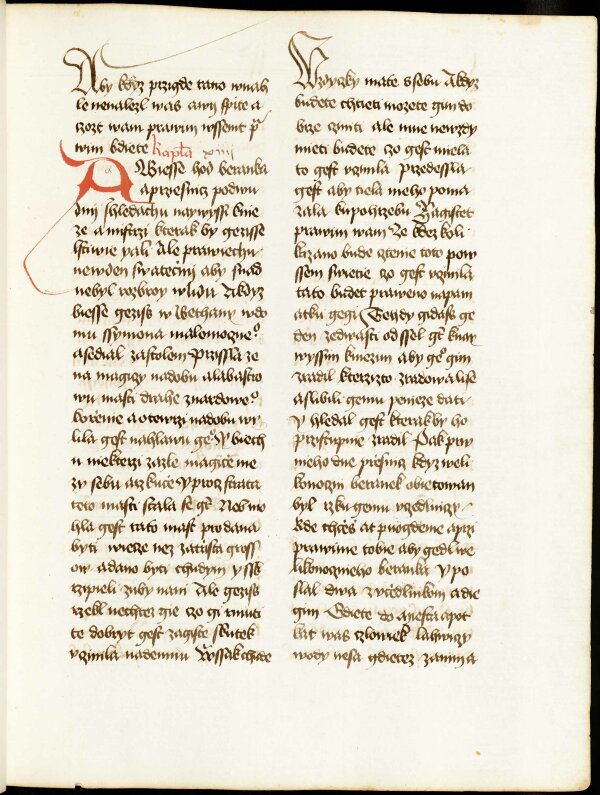 Aby kdyz przigde tano wnah
le nenalezl was awy spite a
czozt wam prawim wssem pra
wim bdiete Kapla xiiii
A Biesse hod beranka
a przesnicz podwu
dnij shledachu naywyssi knie
ze a mistrzi kterak by gezisse
lstiwie yali Ale prawiechu
ne wden swatecni aby snad
nebyl rozbroy wlidu A kdyz
biesse gezis w Bethany wdo
mu ssymona malomozneho
a sedial zastolem Przissla ze
na magiczy nadobu alabastro
wu masti drahe znardoweho
korzenie a otewrzi nadobu wy
lila gest nahlawu geho Y biech
u niekterzi zazle magicze me
zy sebu a rzkucze Y procz strata
teto masti stala se gest Neb mo
hla gest tato mast prodana
byti wiecze nez zatrzista gross
ow a dano byti chudym y ssk
rzipieli zuby nani Ale gezis
rzekl nechtez gie czo gi rmuti
te dobryt gest zagiste skutek
vczinila nademnu Wssak chude
Wzdyczky mate ssebu A kdyz
budete chtieti mozete gim do
brze cziniti ale mne newzdy
mieti budete czo gest miela
to gest vczinila Przedessla
gest aby tiela meho poma
zala ku pohrzebu Zagistet
prawim wam Ze kdez koli
kazano bude cztenie toto po w
ssem swietie czo gest vczinila
tato budet praweno na pam
atku gegi Tehdy gidass ge
den zedwasti odssel gest knay
wyssim kniezim aby geho gim
zradil kterzizto zradowali se
a slibili gemu penieze dati
y hledal gest kterak by ho
przistupnie zradil Pak prw
nieho dne przesnicz kdyz weli
konoczni beranek obietowan
byl rzku gemu vczedlniczy
Kde chczes at puogdeme a przi
prawime tobie aby gedl we
likonoczneho beranka Y po
slal dwa z vczedlnikow a die
gim Gdiete do miesta a pot
kat was czlowiek lahwiczy
wody nesa gdietez zanim a